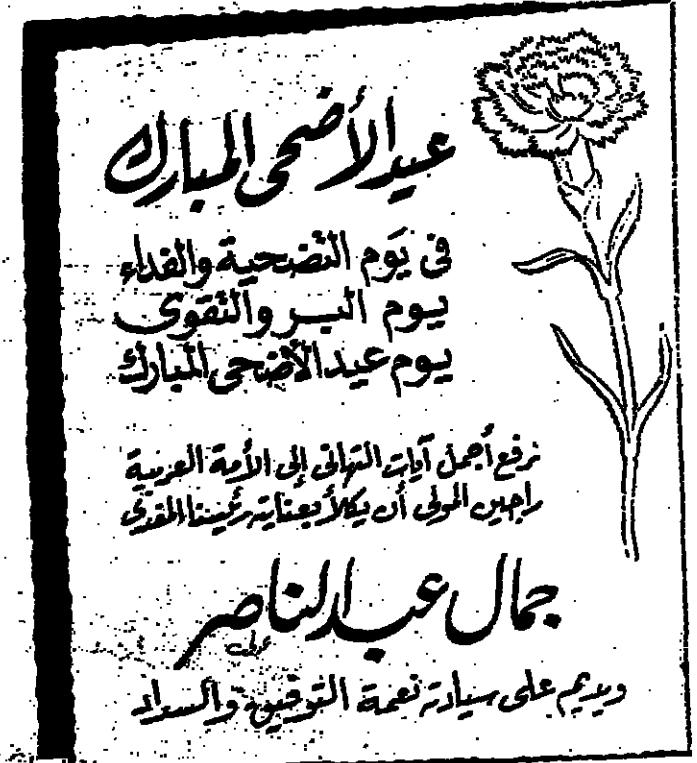 عيد الأضحى المبارك
فى يَوم التضحية والفداء
يوم البر والتقوى
يوم عيد الأضحى المبارك
نرفع أجمل آيات التهانى إلى الأمة العربية
راجين المولى أن يكلأ بعنايته رئيسنا المفدى
جمال عبد الناصر
ويديم على سيادته نعمة التوفيق والسداد